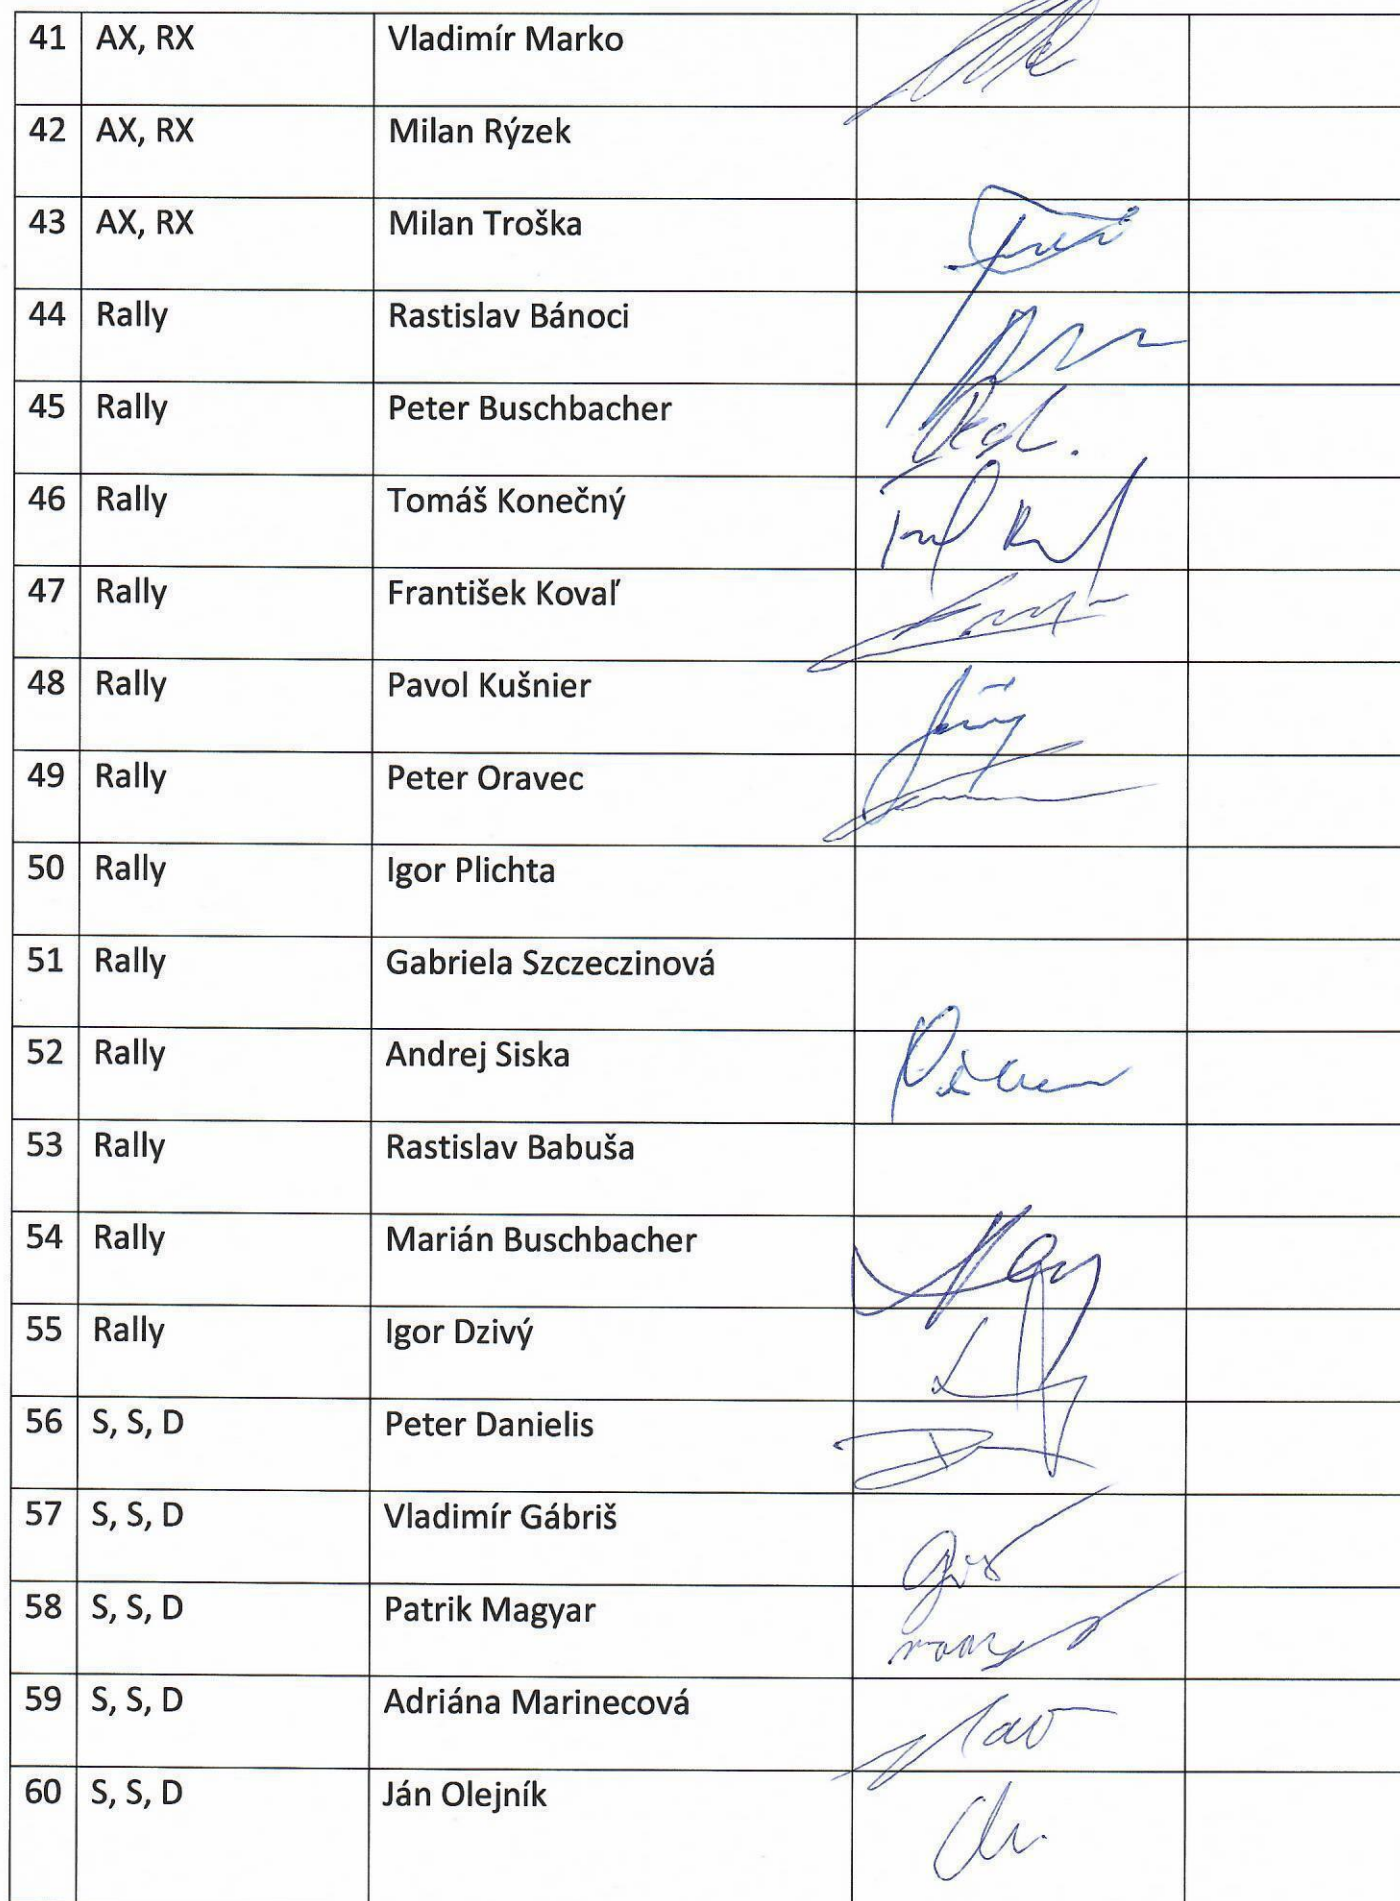 41 AX, RX Vladimír Marko
42 AX, RX Milan Rýzek
43 AX, RX Milan Troška
44 Rally Rastislav Bánoci
45 Rally Peter Buschbacher
46 Rally Tomáš Konečný
47 Rally František Kovaľ
48 Rally Pavol Kušnier
49 Rally Peter Oravec
50 Rally Igor Plichta
51 Rally Gabriela Szczeczinová
52 Rally Andrej Siska
53 Rally Rastislav Babuša
54 Rally Marián Buschbacher
55 Rally Igor Dzivý
56 S, S, D Peter Danielis
57 S, S, D Vladimír Gábriš
58 S, S, D Patrik Magyar
59 S, S, D Adriána Marinecová
60 S, S, D Ján Olejník